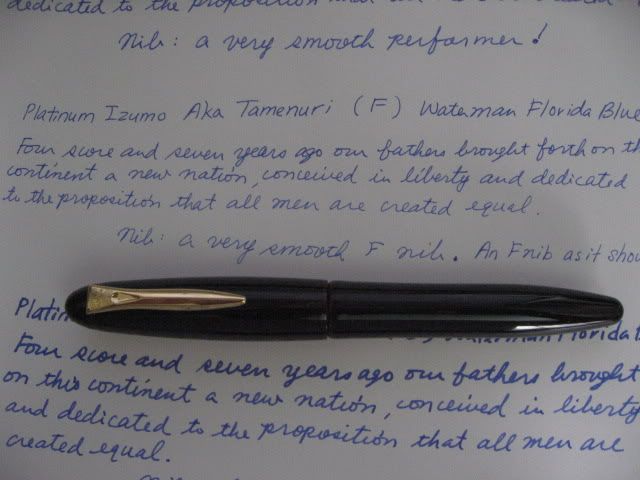 dedicated to the proposition
Nib: a very smooth performer!
Platinum Izumo Aka Tamenuri (F) Waterman Florida Blue
Four score and seven years ago our fathers brought forth on th
continent a new nation, conceived in liberty and dedicated
to the proposition that all men are created equal.
Nib: a very smooth F nib. An F nib as it shou
Platin Waterman Florida
Four score and seven years ago our fathers brought
on this continent a new nation, conceived in liberty
and dedicated to the proposition that all men are
created equal.